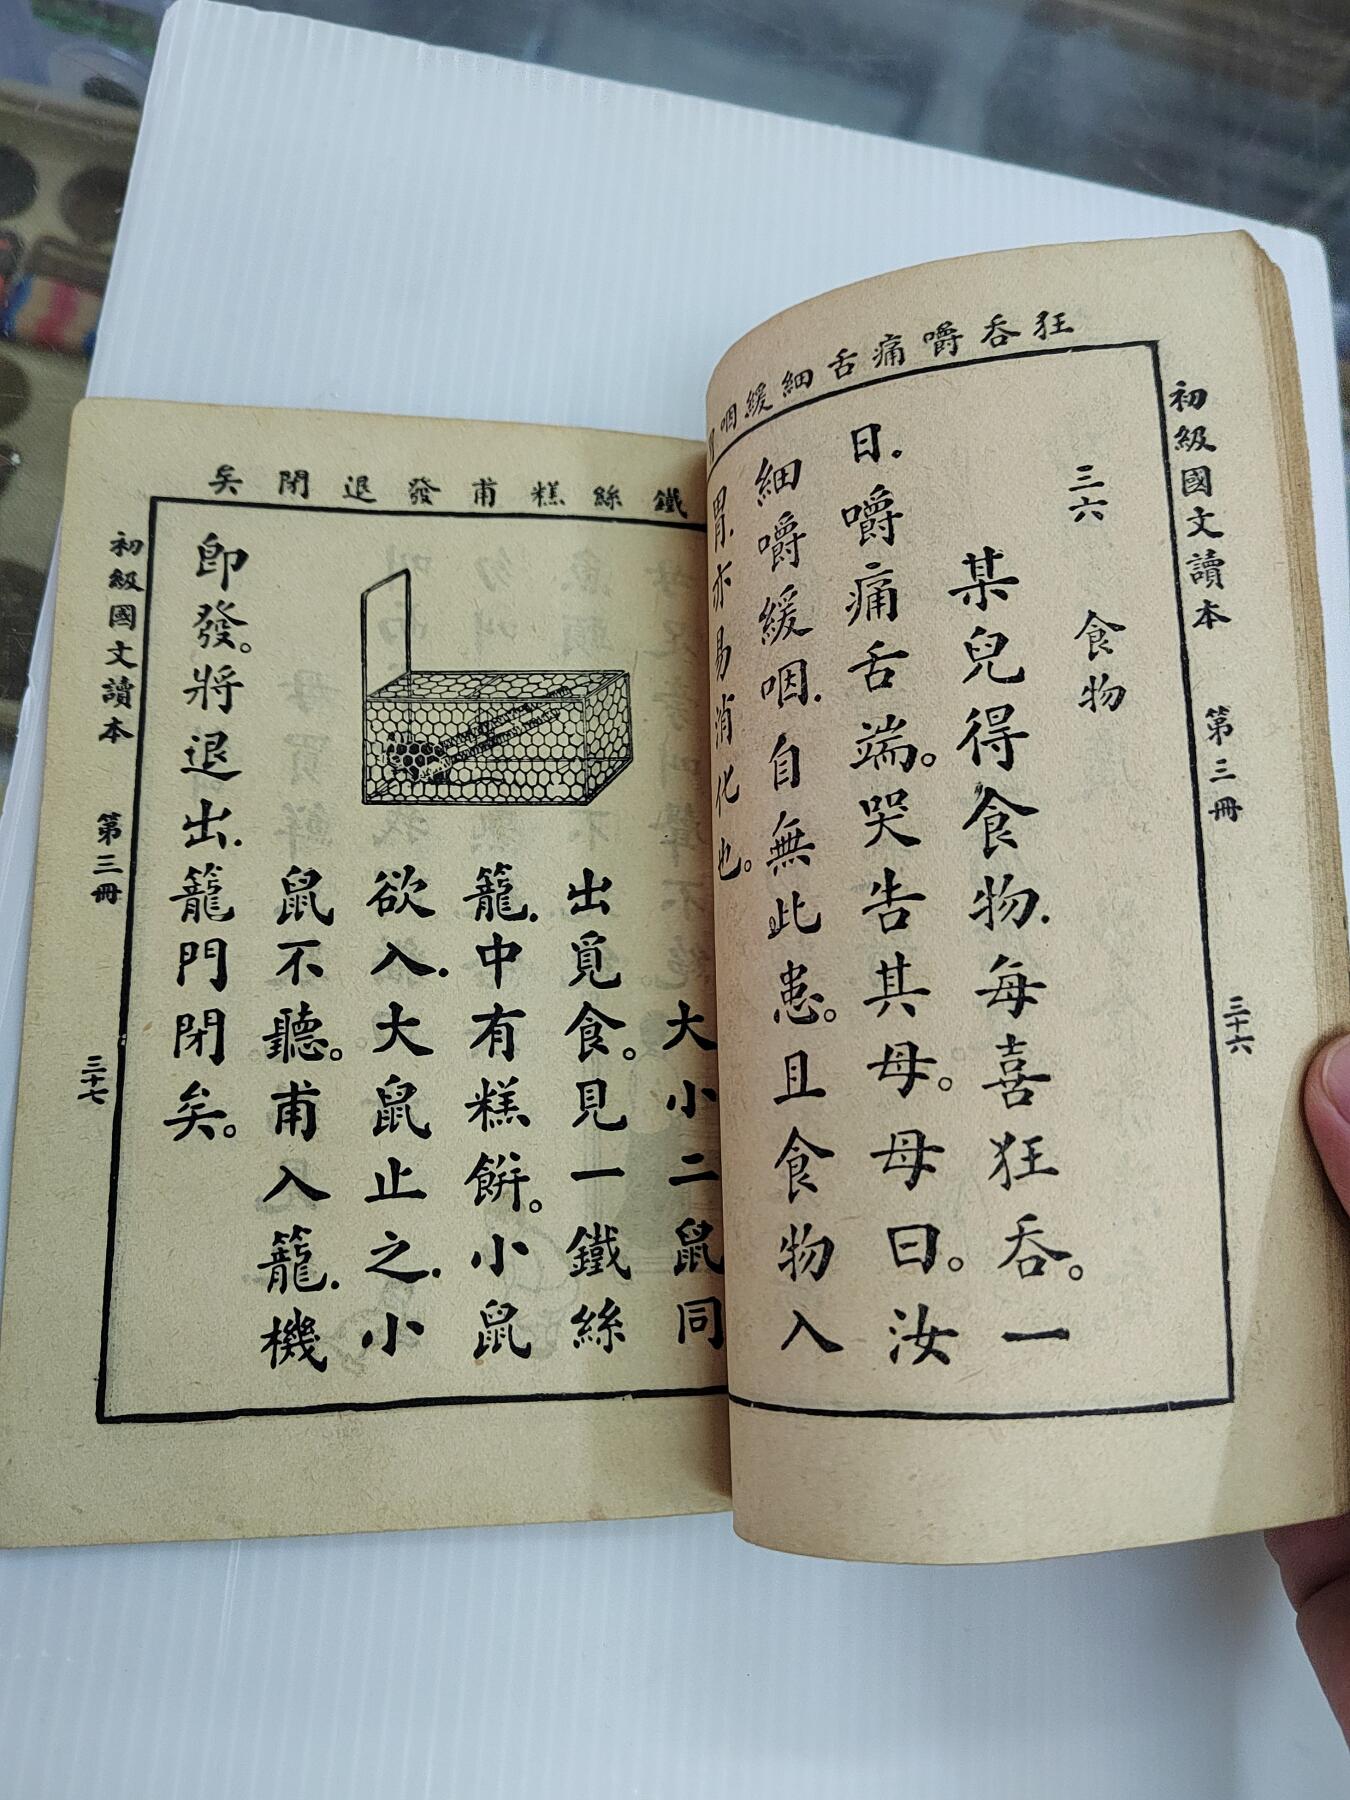 狂吞嚼痛舌細緩咽胃
初級國文讀本 第三冊 三十六
三六 食物
某兒得食物.每喜狂吞。一
日.嚼痛舌端。哭告其母。母曰。汝
細嚼緩咽.自無此患。且食物入
胃.亦易消化也。
鐵絲糕甫發退閉矣
大小二鼠同
出覓食。見一鐵絲
籠.中有糕餅。小鼠
欲入.大鼠止之.小
鼠不聽。甫入籠.機
卽發。將退出.籠門閉矣。
初級國文讀本 第三冊 三十七